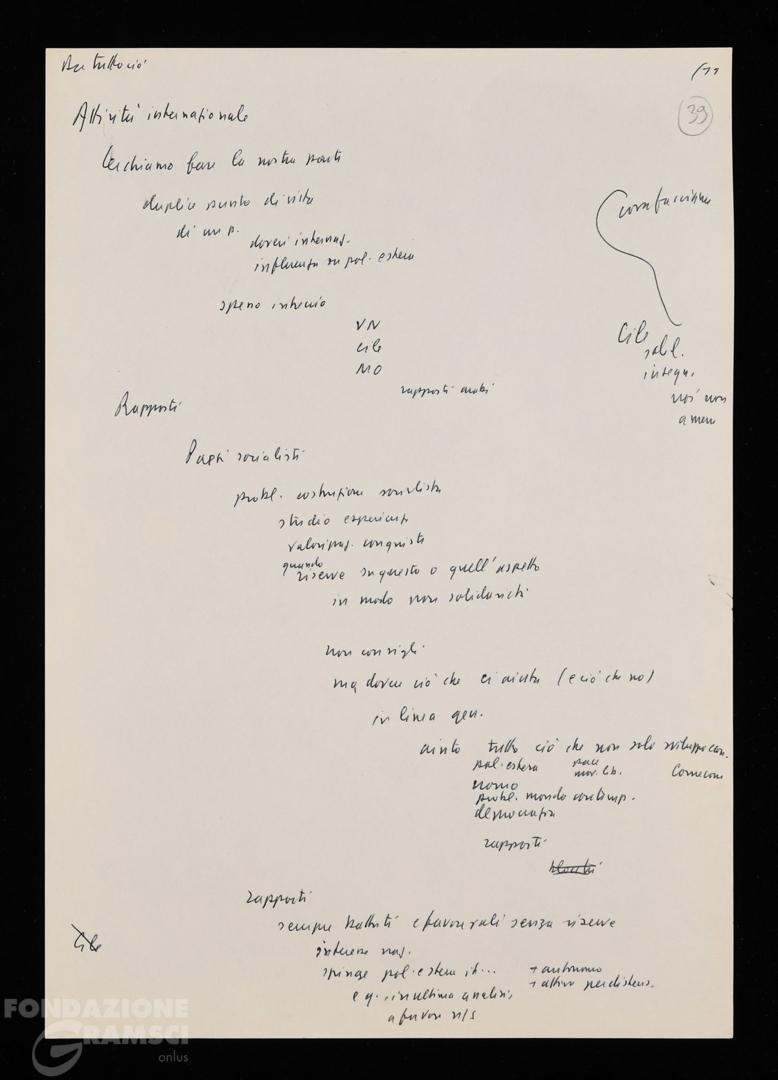 Da tutto ciò
(11
39
Attività internazionale
Cerchiamo fare la nostra parte
duplice punto di vista
di un p.
doveri internaz.
influenza su pol. estera
spesso intreccio
VN
Cile
MO
Cile
probl.
insegn.
noi non
rapporti
Rapporti
Paesi socialisti
probl. costruzione socialista
studio esperienze
valorizzaz. conquiste
quando
riserve su questo o quell'aspetto
in modo non solidaristi
non consigli
ma dovere ciò che ci aiuta (e ciò che no)
in linea gen.
aiuto tutto ciò che non solo sviluppo econ.
pol. estera pace mov. lib. Comecon
uomo
probl. mondo contemp.
democrazia
rapporti
blocchi
rapporti
sempre battuti e favorevoli senza riserve
interesse naz.
spinge pol. estera it... + autonoma
+ attiva per distens.
e q. in ultima analisi,
a favore n/s
Cile
FONDAZIONE
GRAMSCI
onlus